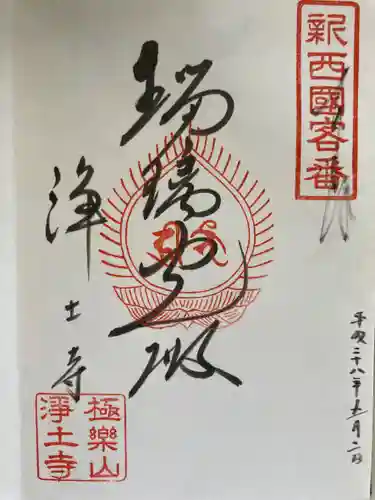 新西國客番
奉拝
平成二十八年五月二日
瑠璃光殿
浄土寺
極樂山
淨土寺